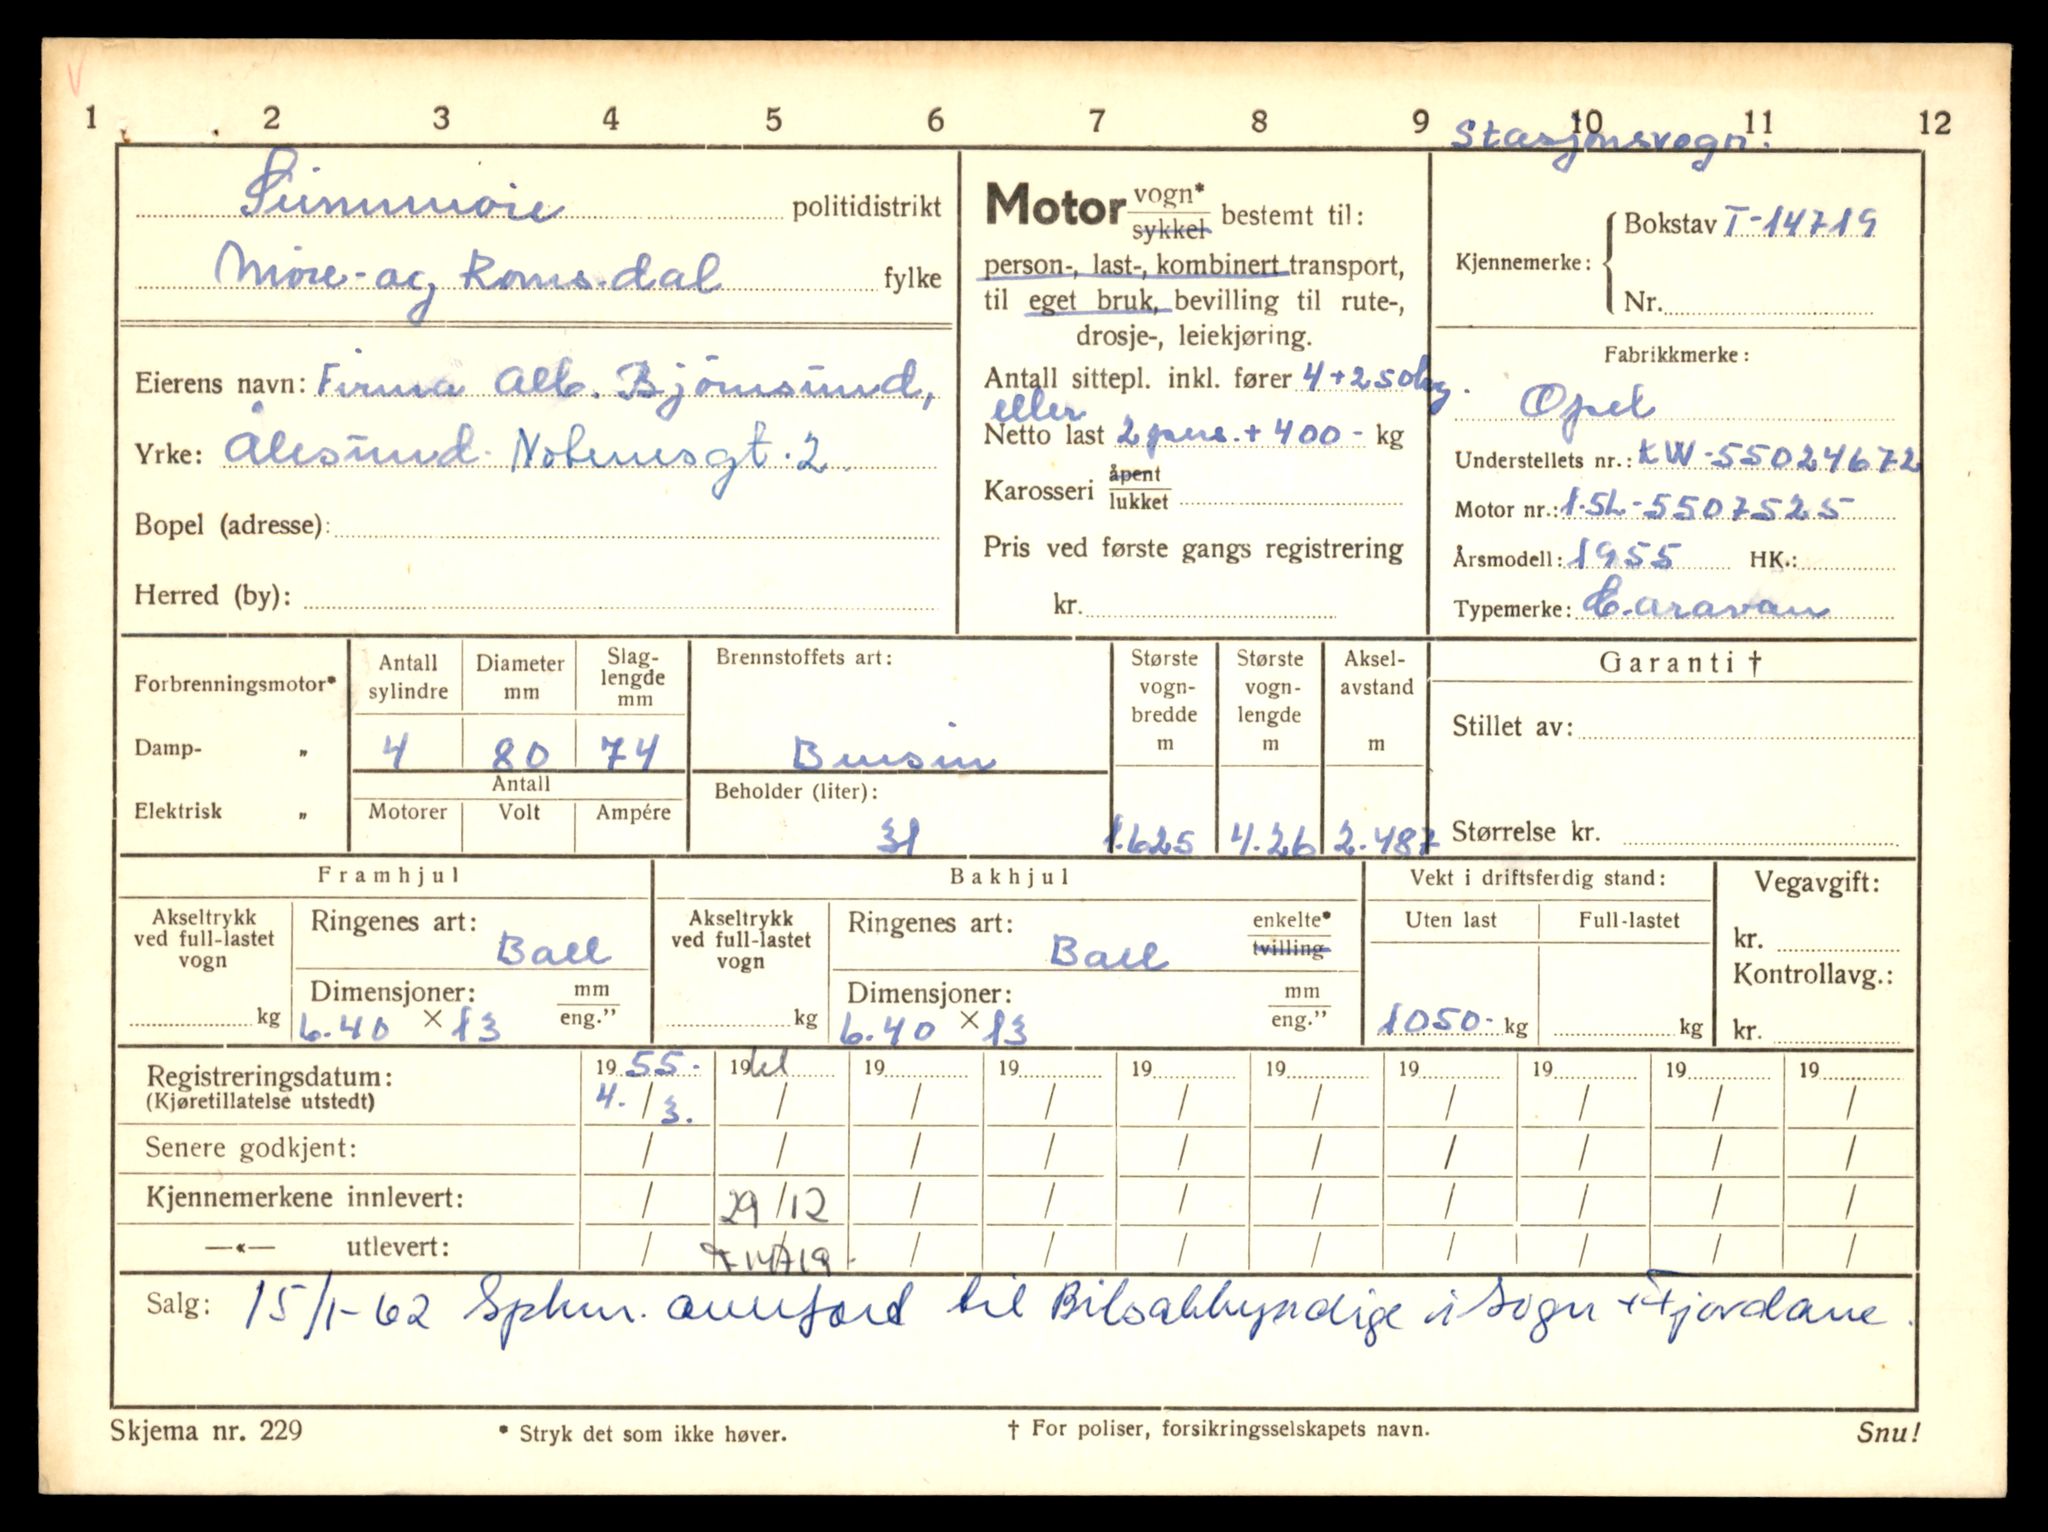 1 2 3 4 5 6 7 8 9 10 11 12
Stasjonsvogn.
Sunnmøre politidistrikt
Møre- og Romsdal fylke
Eierens navn: Firma Alb. Bjørnsund,
Yrke: Ålesund. Notenesgt. 2.
Bopel (adresse):
Herred (by):
Motor vogn* sykkel bestemt til:
person-, last-, kombinert transport,
til eget bruk, bevilling til rute-,
drosje-, leiekjøring.
Antall sittepl. inkl. fører 4+250kg.
eller
Netto last 2 pers. + 400- kg
Karosseri åpent lukket
Pris ved første gangs registrering
kr.
Kjennemerke: Bokstav T-14719
Nr.
Fabrikkmerke:
Opel
Understellets nr.: KW-55024672
Motor nr.: 1.5L-5507525
Årsmodell: 1955 HK.:
Typemerke: Caravan
Forbrenningsmotor*
Damp- „
Elektrisk „
Antall sylindre Diameter mm Slag-lengde mm
4 80 74
Antall
Motorer Volt Ampére
Brennstoffets art:
Bensin
Beholder (liter):
31
Største vogn-bredde m Største vogn-lengde m Aksel-avstand m
1.625 4.26 2.487
Garanti †
Stillet av:
Størrelse kr.
Framhjul
Akseltrykk ved full-lastet vogn
kg
Ringenes art:
Ball
Dimensjoner: mm eng."
6.40 × 13
Bakhjul
Akseltrykk ved full-lastet vogn
kg
Ringenes art: enkelte* tvilling
Ball
Dimensjoner: mm eng."
6.40 × 13
Vekt i driftsferdig stand:
Uten last Full-lastet
1050- kg kg
Vegavgift:
kr.
Kontrollavg.:
kr.
Registreringsdatum: 19 55. 19 61 19 19 19 19 19 19 19 19
(Kjøretillatelse utstedt) 4. / 3. / / / / / / / / /
Senere godkjent: / / / / / / / / / /
Kjennemerkene innlevert: / 29/12 / / / / / / / /
—«— utlevert: / T 14719- / / / / / / / /
Salg: 15/1-62 Spkm. overført til Bilsakkyndige i Sogn + Fjordane.
Skjema nr. 229
* Stryk det som ikke høver.
† For poliser, forsikringsselskapets navn.
Snu!